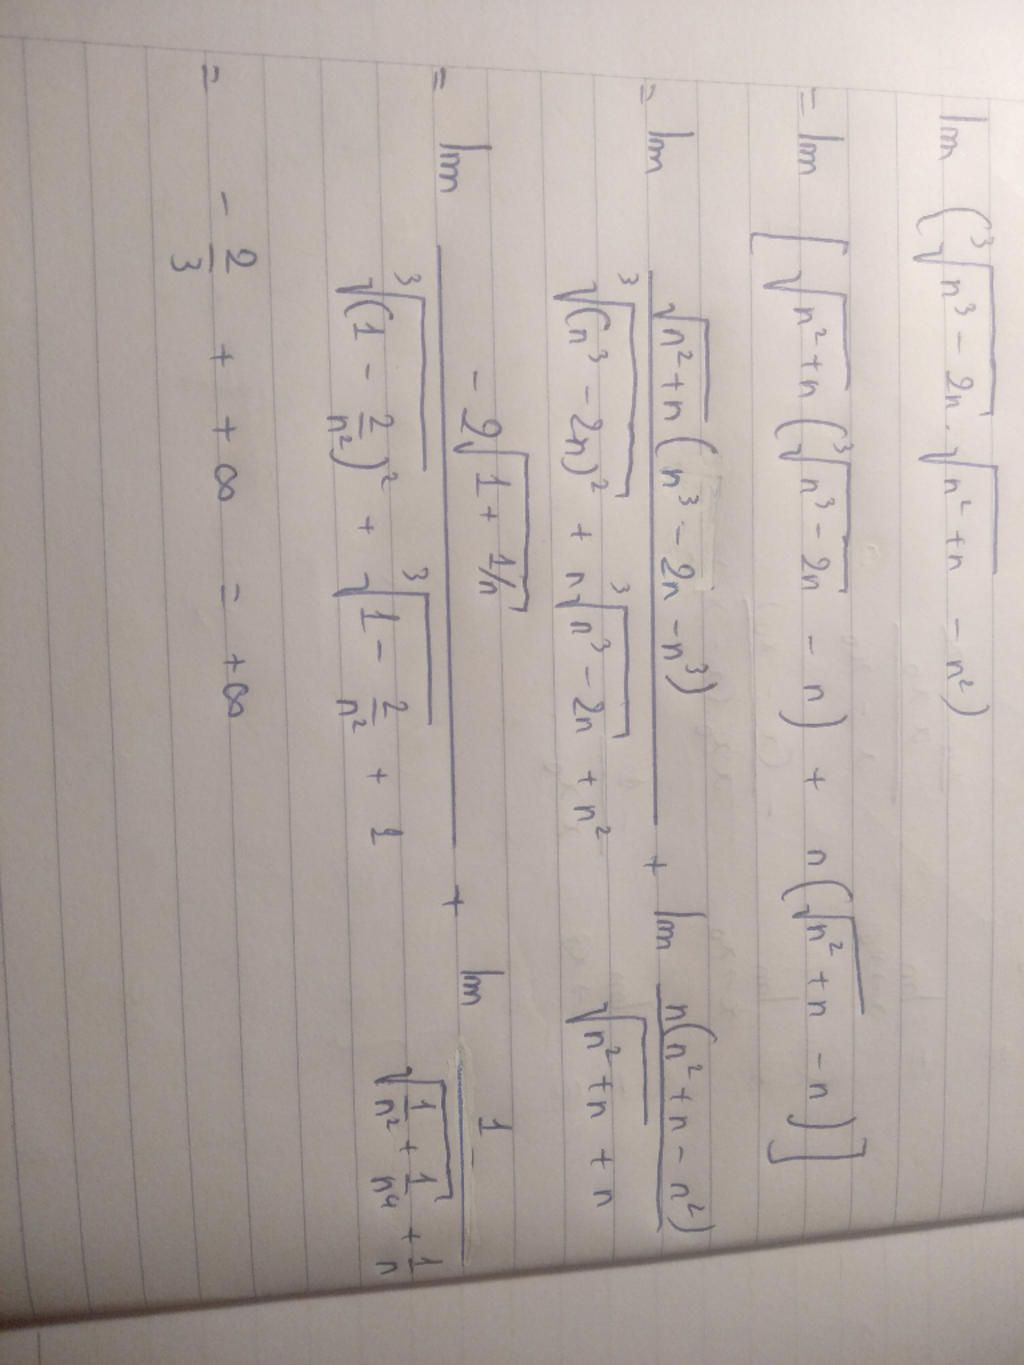 lim (∛(n³ - 2n) . √(n² + n) - n²)
= lim [√(n² + n) (∛(n³ - 2n) - n) + n(√(n² + n) - n)]
= lim √(n² + n) (n³ - 2n - n³) / (∛((n³ - 2n)²) + n∛(n³ - 2n) + n²) + lim n(n² + n - n²) / (√(n² + n) + n)
= lim -2√(1 + 1/n) / (∛((1 - 2/n²)²) + ∛(1 - 2/n²) + 1) + lim 1 / (√(1/n² + 1/n⁴) + 1/n)
= - 2/3 + +∞ = +∞